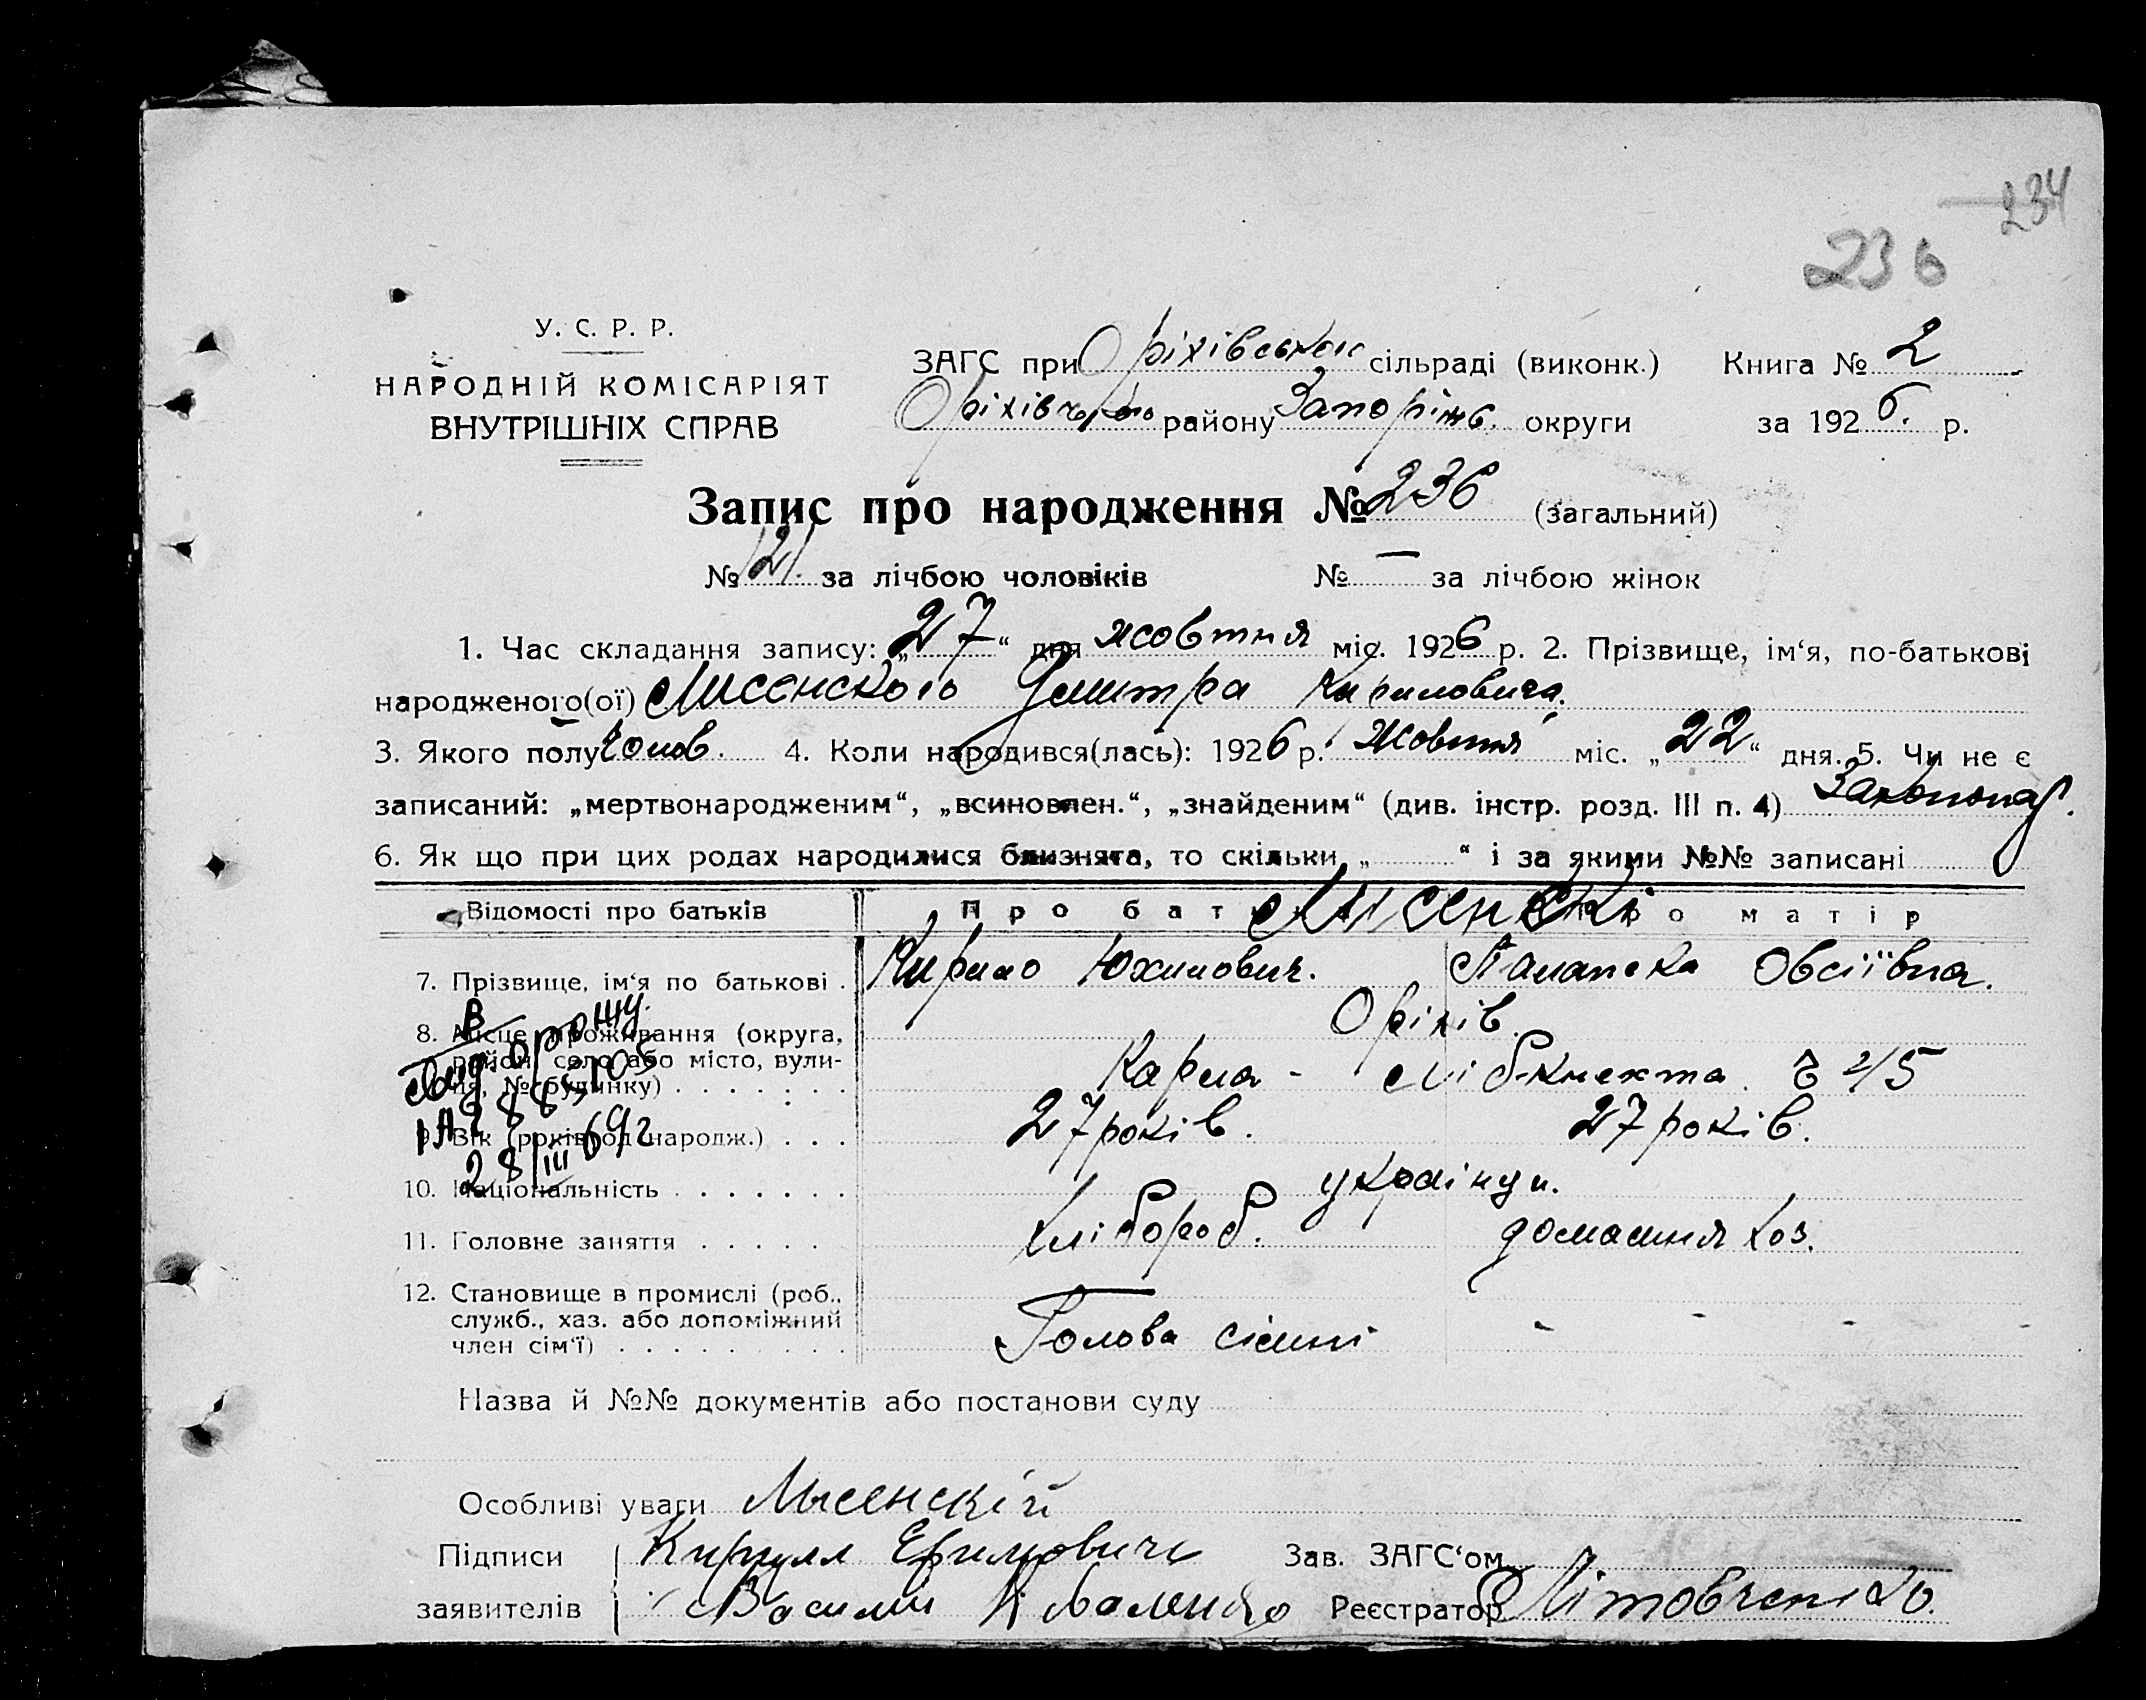 234
236
У. С. Р. Р.
НАРОДНІЙ КОМІСАРІЯТ
ВНУТРІШНІХ СПРАВ
ЗАГС при Оріхівськом сільраді (виконк.) Книга № 2
Оріхівського району Запоріж. округи за 1926. р.
Запис про народження № 236 (загальний)
№ 121. за лічбою чоловіків № — за лічбою жінок
1. Час складання запису: „27“ дня жовтня міс. 1926 р. 2. Прізвище, ім‘я, по-батькові
народженого(ої) Лисенского Дмитра Кириловича.
3. Якого полу чолов. 4. Коли народився(лась): 1926 р. Жовтня міс. „22“ дня. 5. Чи не є
записаний: „мертвонародженим“, „всиновлен.“, „знайденим“ (див. інстр. розд. III п. 4)
6. Як що при цих родах народилися близнята, то скільки „ “ і за якими №№ записані
Відомості про батьків Про бать Лисенскі Про матір
7. Прізвище, ім‘я по батькові . Кирило Юхимович. Палапека Овсіївна.
8. Місце проживання (округа, Оріхів.
район, село або місто, вули-
ця, № будинку) . . . . . . . Карла - Лібкнехта. 2/5
9. Вік (років од народж.) . . . 27 років. 27 років.
В
28/III 69г
10. Національність . . . . . . . українци.
11. Головне заняття . . . . . Хлібороб. домашня хоз.
12. Становище в промислі (роб.,
служб., хаз. або допоміжний
член сім‘ї) . . . . . . . . . Голова сімні - - - -
Назва й №№ документів або постанови суду
Особливі уваги Лысенскій
Підписи Кирилл Ефимович Зав. ЗАГС‘ом
заявителів Василий Коваленко Реєстратор Літовченко.